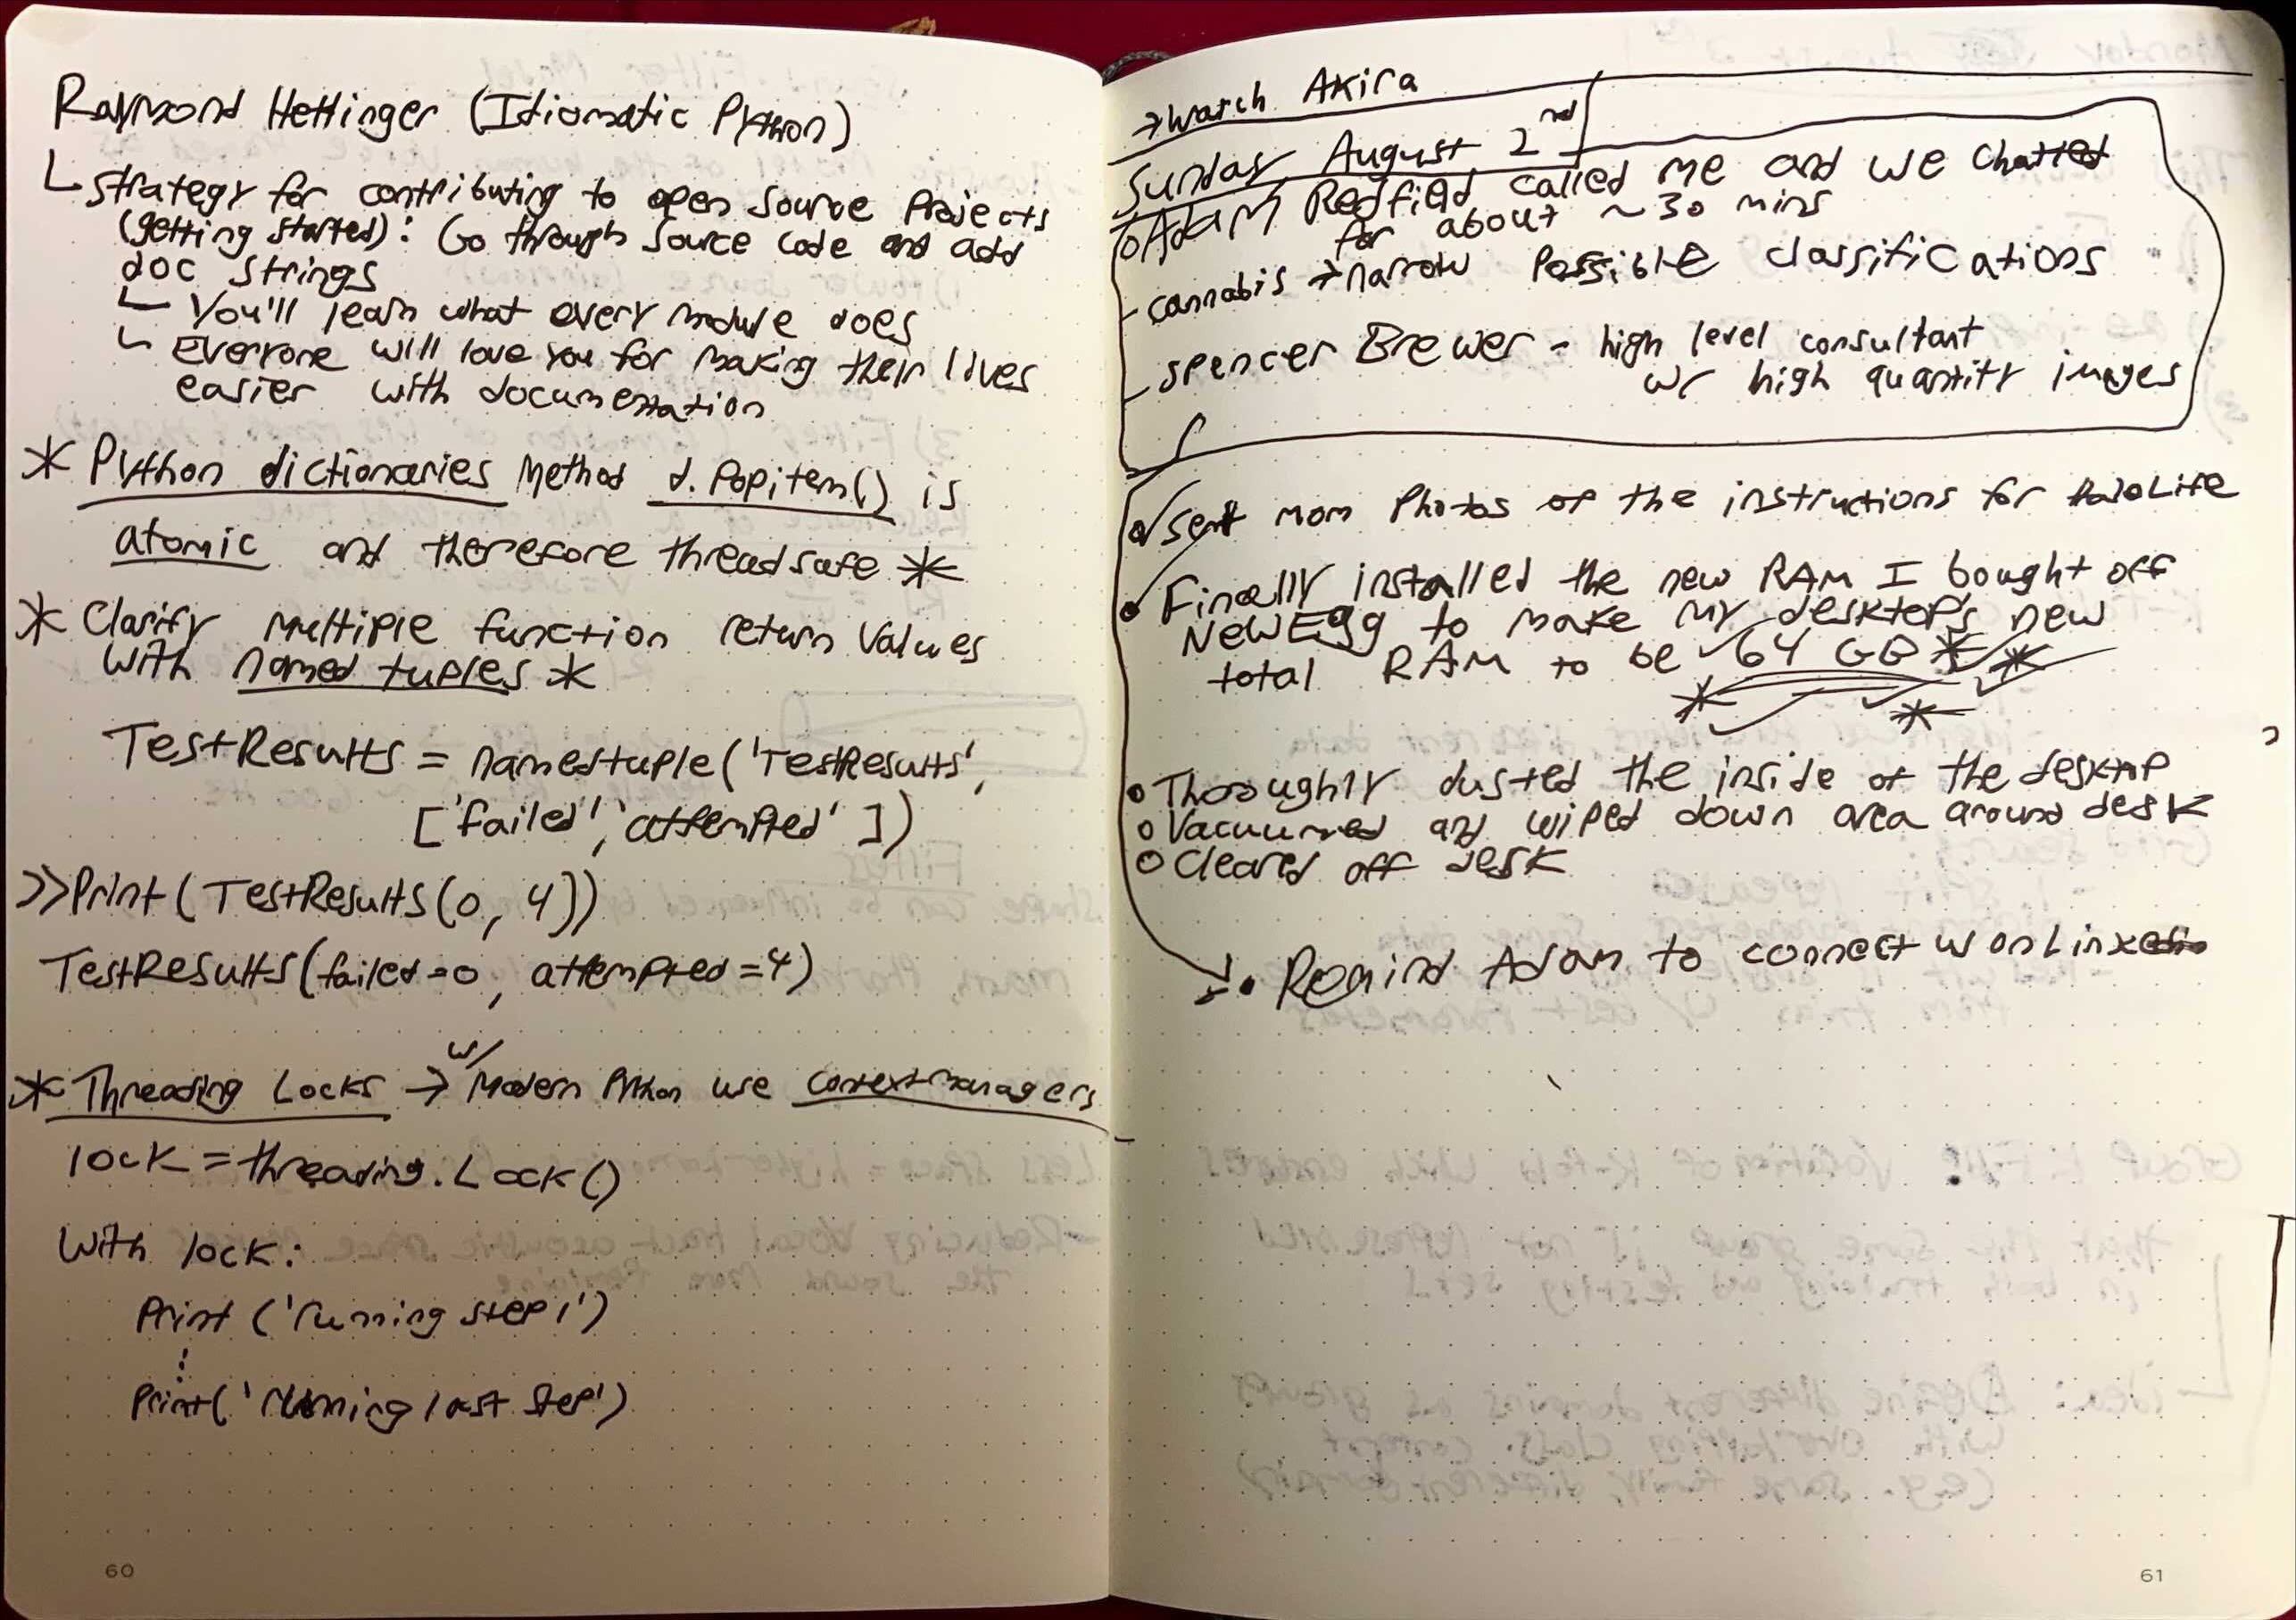 Raymond Hettinger (Idiomatic Python)
strategy for contributing to open source projects
(getting started): Go through source code and add
doc strings
You'll learn what every module does
Everyone will love you for making their lives
easier with documentation
* Python dictionaries method d.popitem() is
atomic and therefore threadsafe *
* Clarify multiple function return values
with named tuples *
TestResults = namedtuple('TestResults',
['failed', 'attempted'])
>>Print(TestResults(0, 4))
TestResults(failed=0, attempted=4)
w/
* Threading Locks → Modern Python use context managers
lock = threading.Lock()
With lock:
Print ('running step 1')
⋮
Print('running last step')
60
→ Watch Akira
Sunday August 2nd
Adam Redfield called me and we chatted
for about ~30 mins
- cannabis → narrow possible classifications
- Spencer Brewer - high level consultant
w/ high quantity images
Sent mom photos of the instructions for
• Finally installed the new RAM I bought off
NewEgg to make my desktop's new
total RAM to be 64 GB * *
* *
Thoroughly dusted the inside of the desktop
Vacuumed and wiped down area around desk
Cleared off desk
• Remind Adam to connect w on Linkedin
61